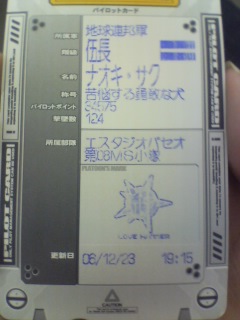 パイロットカード
所属軍 地球連邦軍
階級 伍長
名前 ナオキ・サク
称号 苦悩する勇敢な犬
パイロットポイント 34575
撃墜数 124
所属部隊 エスタジオパセオ
第08MS小隊
更新日 08/12/23 19:15
CAUTION